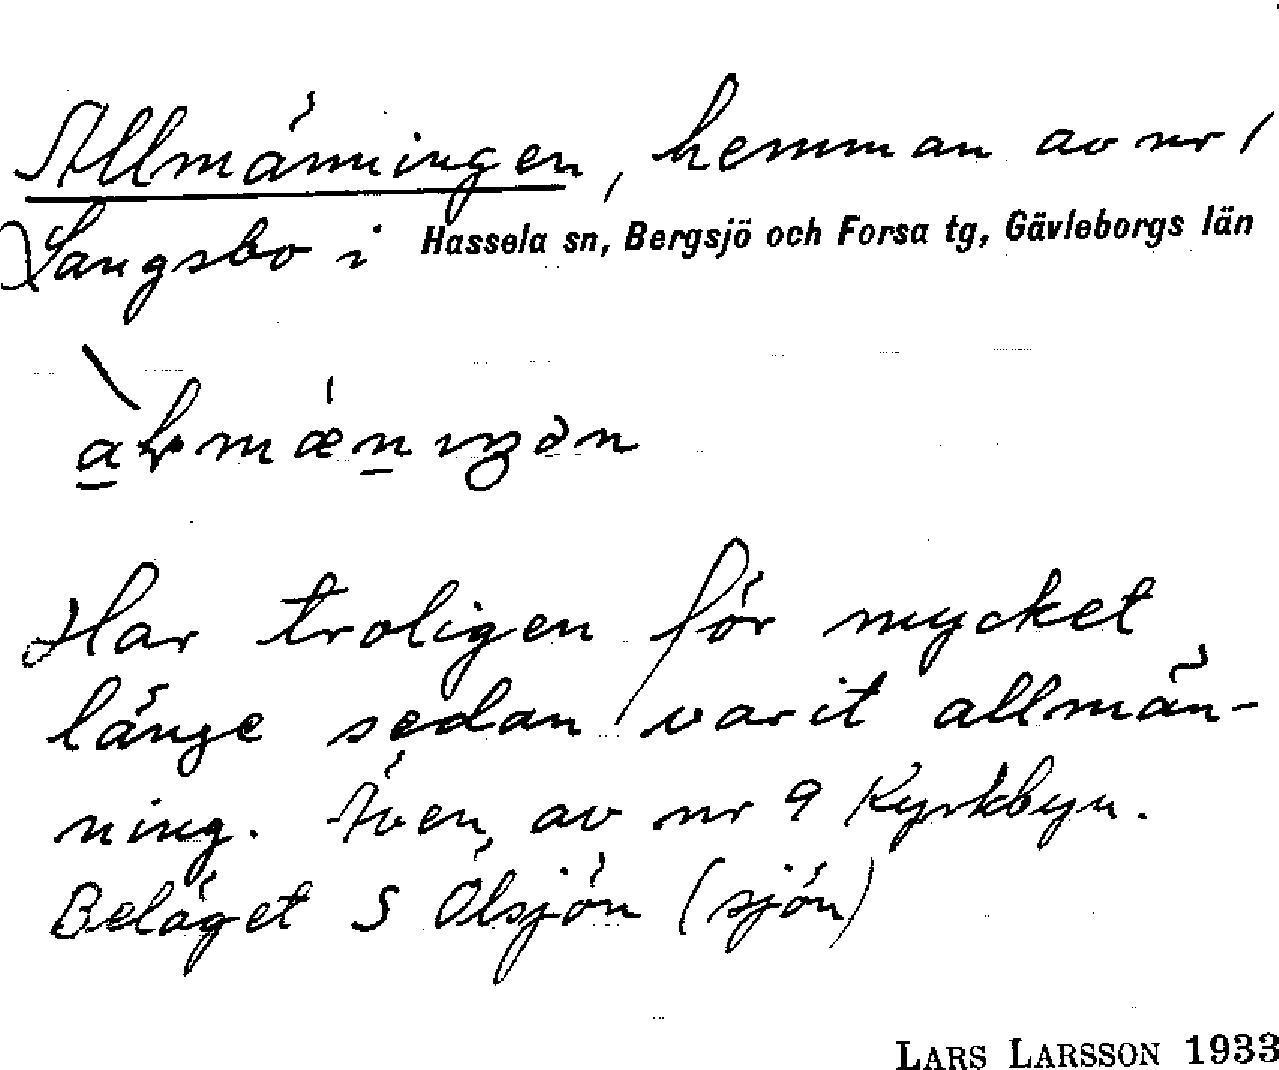 Allmänningen, hemman av nr 1
Sangsbo i Hassela sn, Bergsjö och Forsa tg, Gävleborgs län
Har troligen för mycket
länge sedan varit allmän-
ning. Även av nr 9 Kyrkbyn.
Beläget S Ölsjön (sjön)
LARS LARSSON 1933